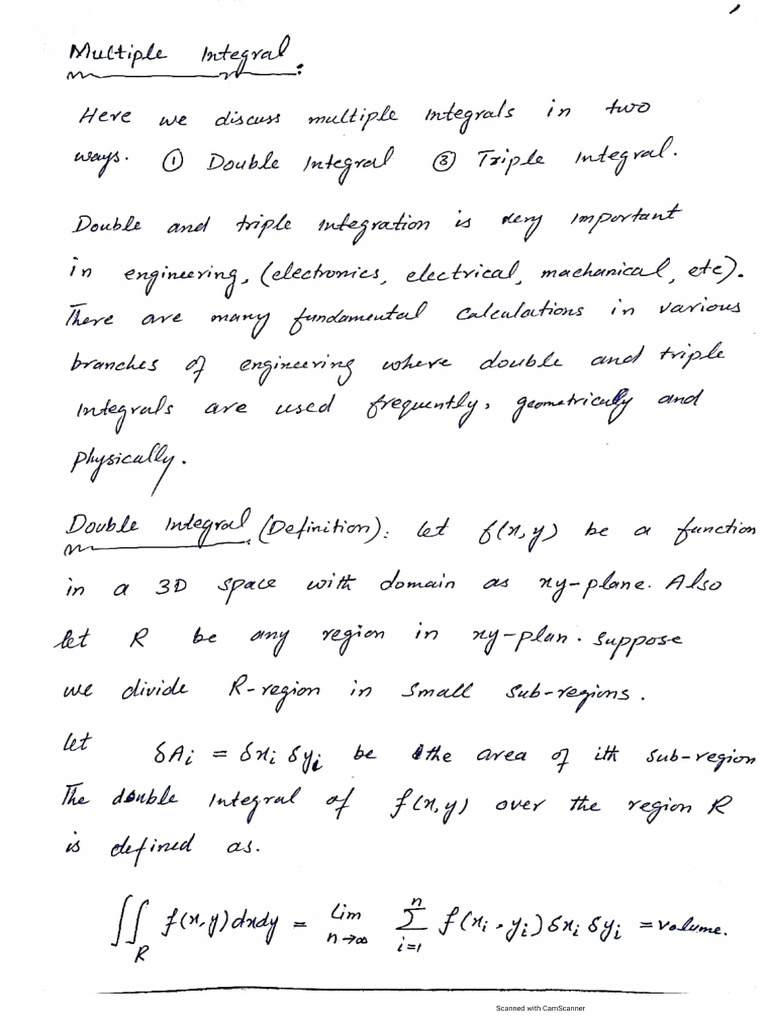 Multiple Integral.
Here we discuss multiple integrals in two
ways. ① Double Integral ③ Triple Integral.
Double and triple integration is very important
in engineering, (electronics, electrical, machanical, etc).
There are many fundamental calculations in various
branches of engineering where double and triple
integrals are used frequently, geometrically and
physically.
Double Integral (Definition): let f(x,y) be a function
in a 3D space with domain as xy-plane. Also
let R be any region in xy-plan. suppose
we divide R-region in small sub-regions.
let δAᵢ = δxᵢ δyᵢ be the area of ith sub-region
The double integral of f(x,y) over the region R
is defined as.
∬_R f(x,y) dxdy = lim_{n→∞} ∑_{i=1}^{n} f(xᵢ, yᵢ) δxᵢ δyᵢ = volume.
Scanned with CamScanner